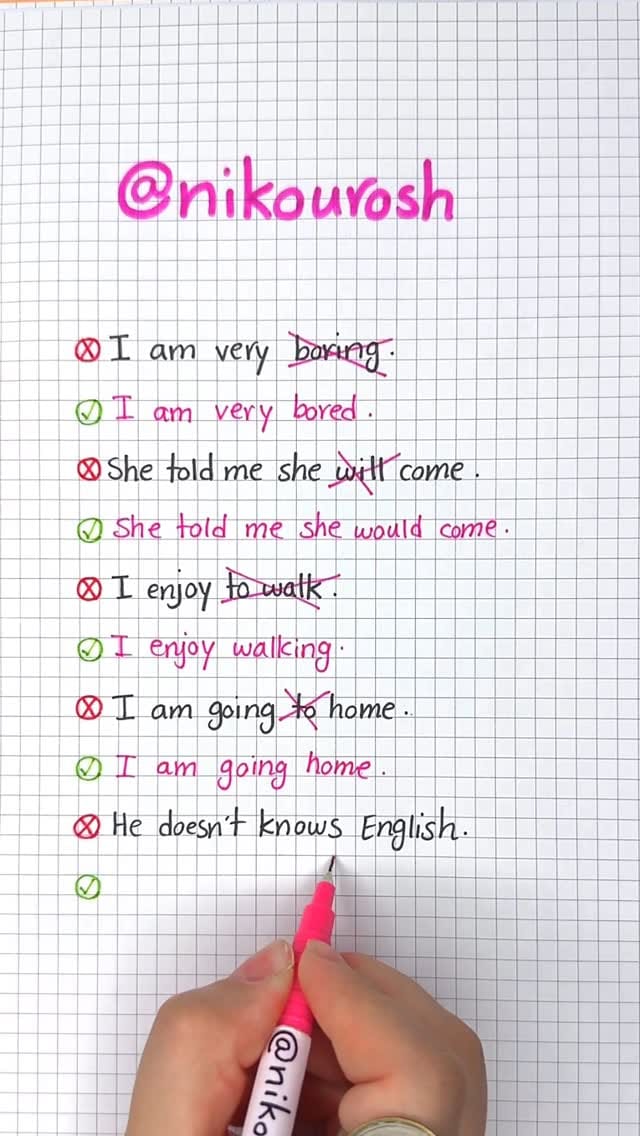 @nikourosh
I am very boring.
I am very bored.
She told me she will come.
She told me she would come.
I enjoy to walk.
I enjoy walking.
I am going to home.
I am going home.
He doesn't knows English.
@niko